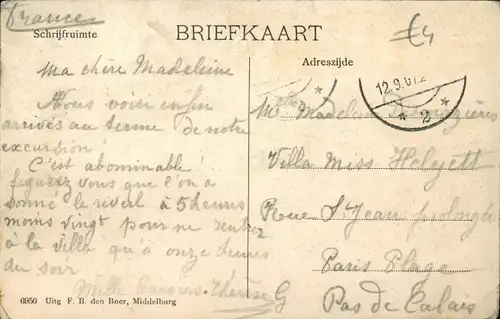 France
BRIEFKAART
£4
Schrijfruimte
Adreszijde
12.9.07.2
2
Ma chère Madeleine
Nous voici enfin
arrivés au terme de notre
excursion!
C'est abominable!
figurez vous que l'on a
sonné le réveil à 5 heures
moins vingt pour ne rentrer
à la villa qu'à onze heures
du soir
Mille baisers Thérèse G
Melle Madeleine
Villa Miss Helyett
Rue St Jean prolongée
Paris Plage
Pas de Calais
6950 Uitg F. B. den Boer, Middelburg